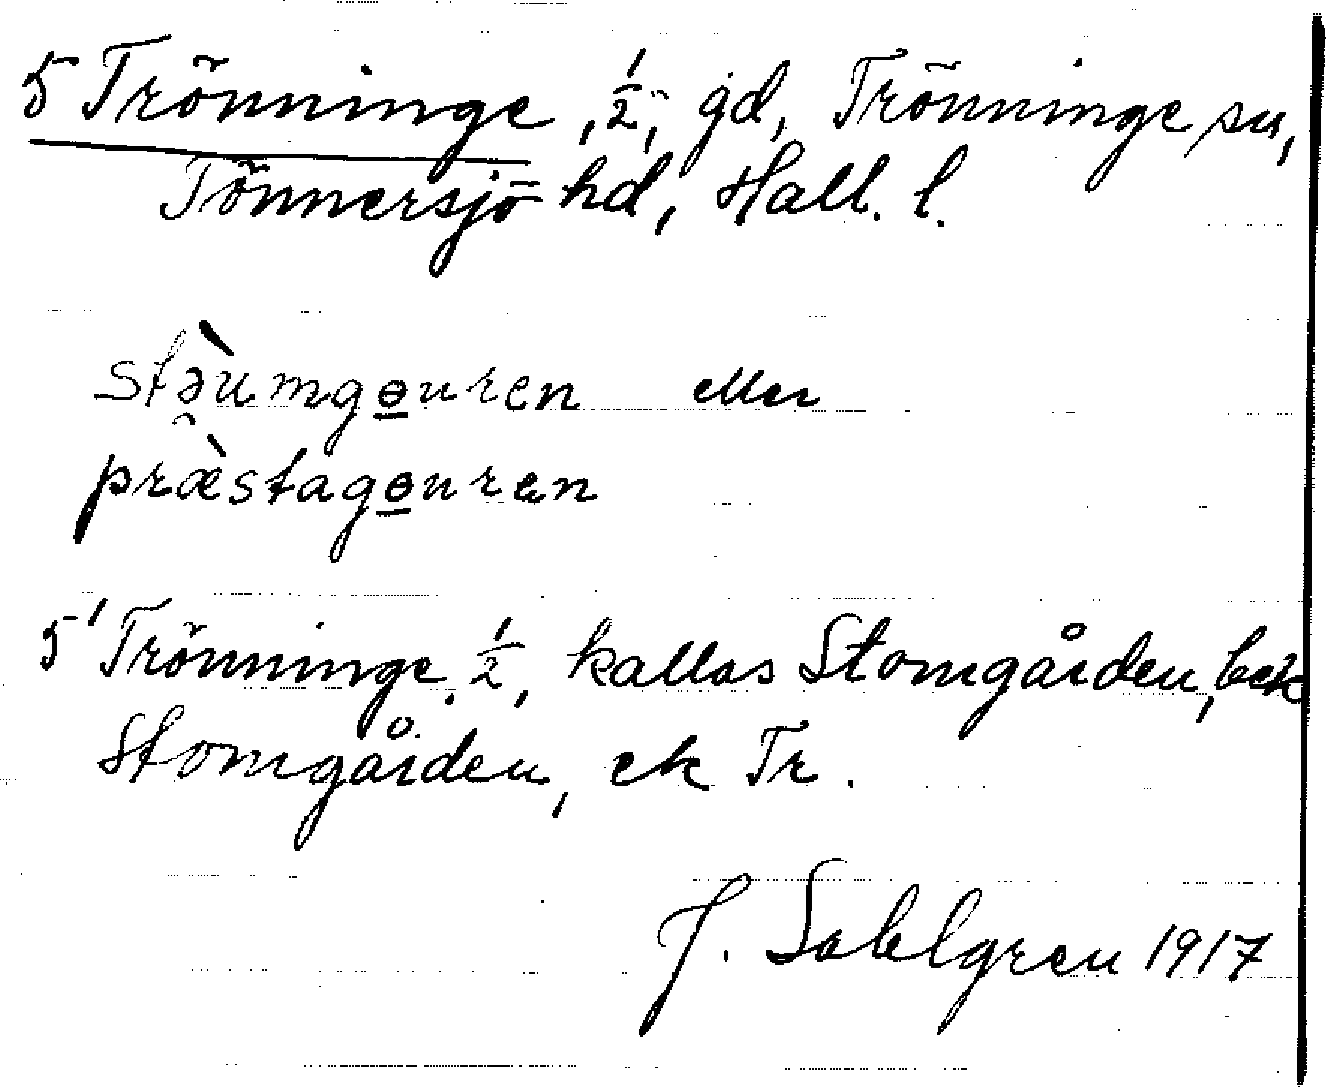 5 Trönninge, 1/2, gd, Trönninge sn,
Tönnersjö hd, Hall. l.
stə̀umgɵuren eller
præ̀stagɵuren
5' Trönninge, 1/2, kallas Stomgården, bek
Stomgården, ek Tr.
J. Sahlgren 1917